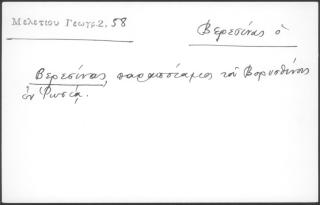 Μελετίου Γεωγρ. 2, 58
Βερεσίνας ὁ
Βερεσίνας, παραπόταμος τοῦ Βορυσθένους
ἐν Ῥωσίᾳ.